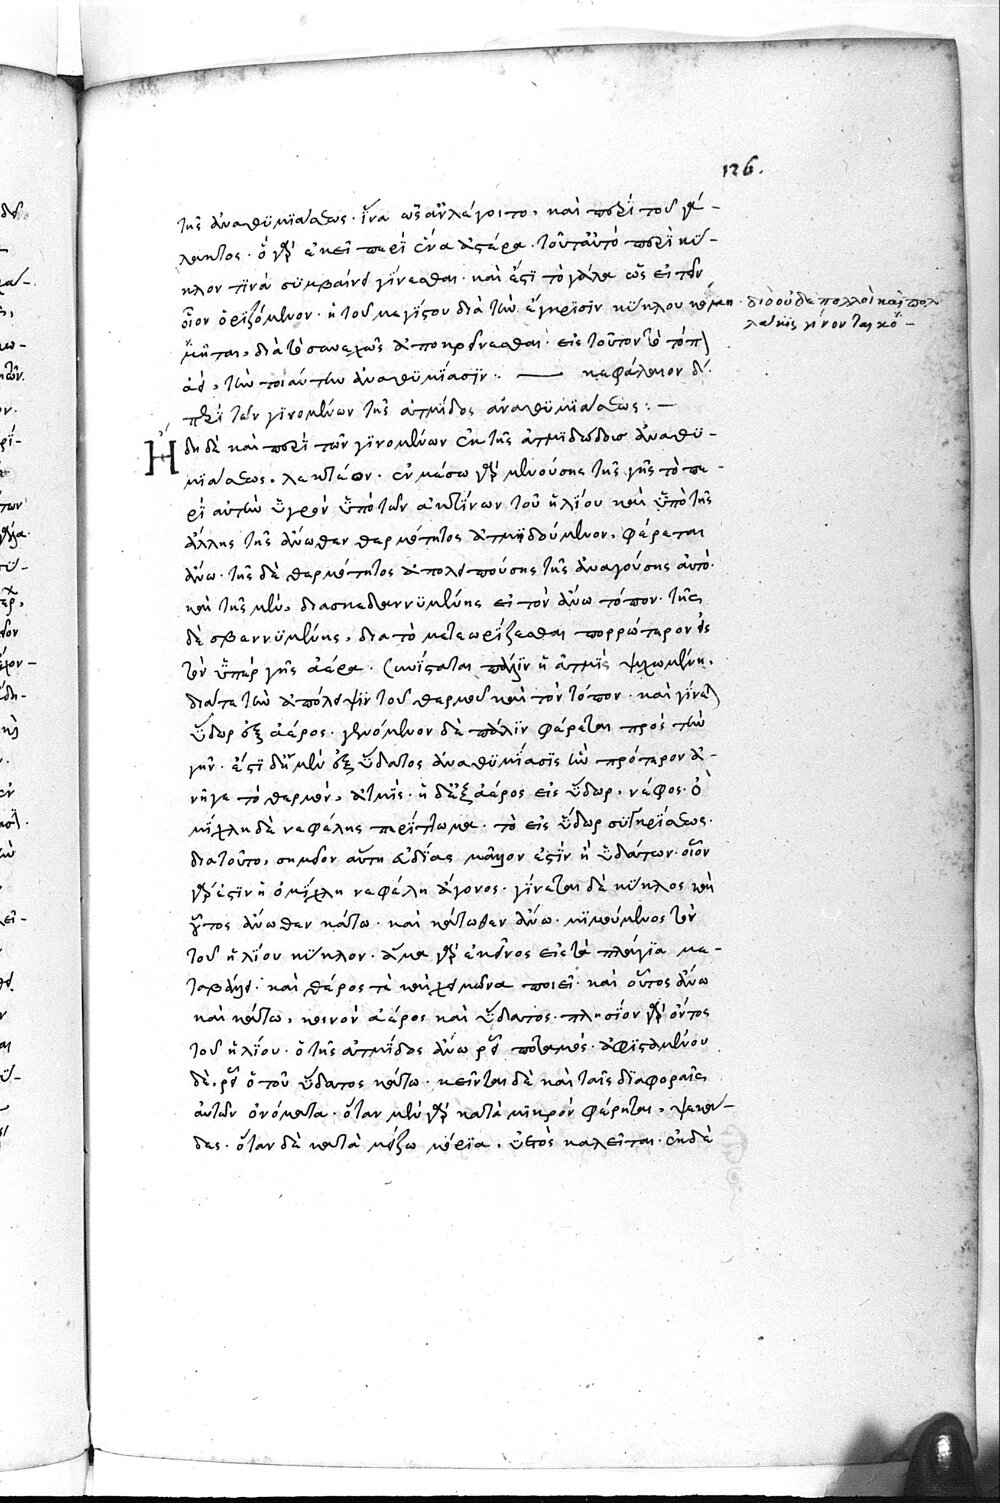 126.
τῆς ἀναθυμιάσεως. ἵνα ὡς ἂν λέγοιτο, καὶ περὶ τοῦ γά-
λακτος. ὃ γὰρ ἐκεῖ περὶ ἕνα ἀστέρα. τοῦτ' αὐτὸ περὶ κύ-
κλον τινὰ συμβαίνει γίνεσθαι. καὶ ἔστι τὸ γάλα ὡς εἰπεῖν
οἷον ὁριζόμενον. ἡ τοῦ μεγίστου διὰ τὴν ἔκκρισιν κύκλου κόμη
διὸ οὐδὲ πολλοὶ καὶ πολ
λάκις γίνονται κο-
μῆται, διὰ τὸ συνεχῶς ἀποκρίνεσθαι. εἰς τοῦτον τὸ τόπ
ἀεὶ, τὴν τοιαύτην ἀναθυμίασιν:. — κεφάλαιον δ΄.
περὶ τῶν γινομένων τῆς ἀτμίδος ἀναθυμιάσεως: —
Ἤδη δὲ καὶ περὶ τῶν γινομένων ἐκ τῆς ἀτμιδώδους ἀναθυ-
μιάσεως, λεκτέον. ἐν μέσω γὰρ μενούσης τῆς γῆς τὸ πε-
ρὶ αὐτὴν ὑγρὸν ὑπὸ τῶν ἀκτίνων τοῦ ἡλίου καὶ ὑπὸ τῆς
ἄλλης τῆς ἄνωθεν θερμότητος ἀτμιδούμενον, φέρεται
ἄνω. τῆς δὲ θερμότητος ἀπολειπούσης τῆς ἀναγούσης αὐτό.
καὶ τῆς μὲν, διασκεδαννυμένης εἰ τὸν ἄνω τόπον. τῆς
δὲ σβεννυμένης, διὰ τὸ μετεωρίζεσθαι πορρώτερον εἰς
τὸν ὑπὲρ γῆς ἀέρα. συνίσταται πάλιν ἡ ἀτμὶς ψυχομένη.
διά τε τὴν ἀπόλειψιν τοῦ θερμοῦ καὶ τὸν τόπον. καὶ γίνεται
ὕδωρ ἐξ ἀέρος. γενόμενον δὲ πάλιν φέρεται πρὸς τὴν
γῆν. ἔστι δ' ἡ μὲν ἐξ ὕδατος ἀναθυμίασις ἣν πρότερον ἀ-
νῆγε τὸ θερμὸν, ἀτμίς. ἡ δ' ἐξ ἀέρος εἰς ὕδωρ, νέφος. ὁ
μίχλη δὲ νεφέλης περίττωμα. τὸ εἰς ὕδωρ συγκρίσεως.
διὰ τοῦτο, σημεῖον αὕτη εὐδίας μᾶλλον ἐστὶν ἢ ὑδάτων. οἷον
γάρ ἐστιν ἡ ὁμίχλη νεφέλη ἄγονος. γίνεται δὲ κύκλος καὶ
οὗτος ἄνωθεν κάτω. καὶ κάτωθεν ἄνω. μιμούμενος τὸν
τοῦ ἡλίου κύκλον. ἅμα γὰρ ἐκεῖνος εἰς τὰ πλάγια με-
ταβάλλει. καὶ θέρος τὲ καὶ χειμῶνα ποιεῖ. καὶ οὗτος ἄνω
καὶ κάτω, κοινὸν ἀέρος καὶ ὕδατος. πλησίον γὰρ ὄντος
τοῦ ἡλίου. ὁ τῆς ἀτμίδος ἄνω ῥεῖ ποταμός. ἀφισταμένου
δὲ, ῥεῖ ὁ τοῦ ὕδατος κάτω. κεῖνται δὲ καὶ ταῖς διαφοραῖς
αὐτῶν ὀνόματα. ὅταν μὲν γὰρ κατὰ μικρὸν φέρηται, ψεκά-
δες. ὅταν δὲ κατὰ μείζω μόρια, ὑετὸς καλεῖται. ἐκ δὲ